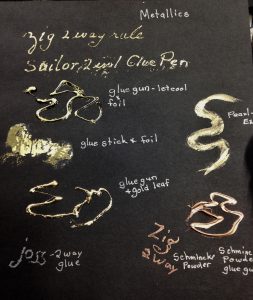 Metallics
Zig 2 way rule
Sailor 2 in 1 Glue Pen
glue gun - let cool
& foil
Pearl-
Ex
glue stick & foil
glue gun
& gold leaf
joss - 2 way
glue
Zig
2 way
Schminck
Powder
Schminc
Powde
glue gu